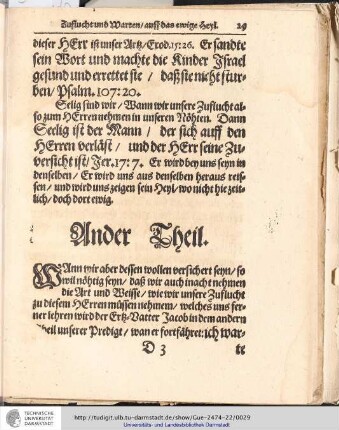 Zuflucht und Warten/ auff das ewige Heyl. 29
dieser HErr ist unser Artz/ Exod. 15:26. Er sandte
sein Wort und machte die Kinder Israel
gesund und errettet sie / daß sie nicht stur-
ben/ Psalm. 107:20.
Selig sind wir / Wann wir unsere Zuflucht al-
so zum HErren nehmen in unseren Nöhten. Dann
Seelig ist der Mann / der sich auff den
HErren verläst / und der HErr seine Zu-
versicht ist/ Jer. 17:7. Er wird bey uns seyn in
denselben / Er wird uns aus denselben heraus reis-
sen / und wird uns zeigen sein Heyl/ wo nicht hie zeit-
lich/ doch dort ewig.
Ander Theil.
WAnn wir aber dessen wollen versichert seyn/ so
wil nöhtig seyn/ daß wir auch inacht nehmen
die Art und Weisse/ wie wir unsere Zuflucht
zu diesem HErren müssen nehmem/ welches uns fer-
ner lehren wird der Ertz-Vatter Jacob in dem andern
Theil unserer Predigt/ wan er fortfähret: ich war-
D 3 te
TECHNISCHE
UNIVERSITÄT
DARMSTADT
http://tudigit.ulb.tu-darmstadt.de/show/Gue-2474-22/0029
Universitäts- und Landesbibliothek Darmstadt